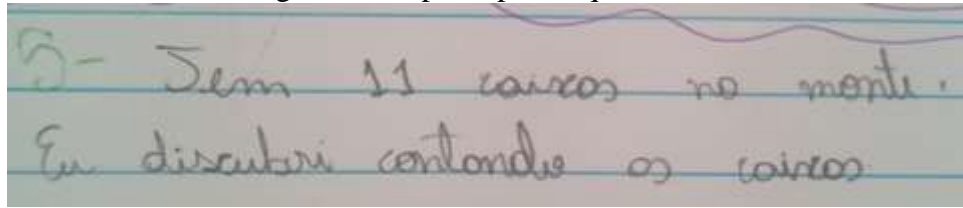 5- Tem 11 caixas no monte.
Eu discubri contando as caixas